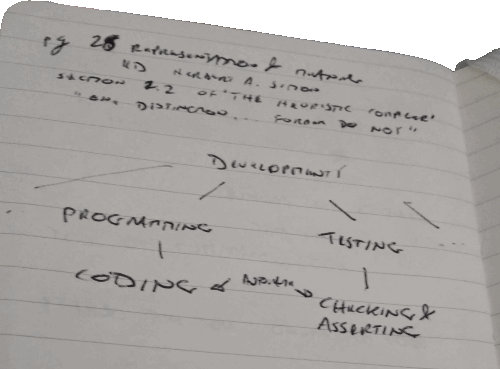 pg 28 Representation of nature
HERBERT A. SIMON
SECTION 2.2 OF "THE HEURISTIC COMPILER"
"ONE DISTINCTION... FORMER DO NOT"
DEVELOPMENT
PROGRAMMING
TESTING
...
CODING
CHECKING &
ASSERTING